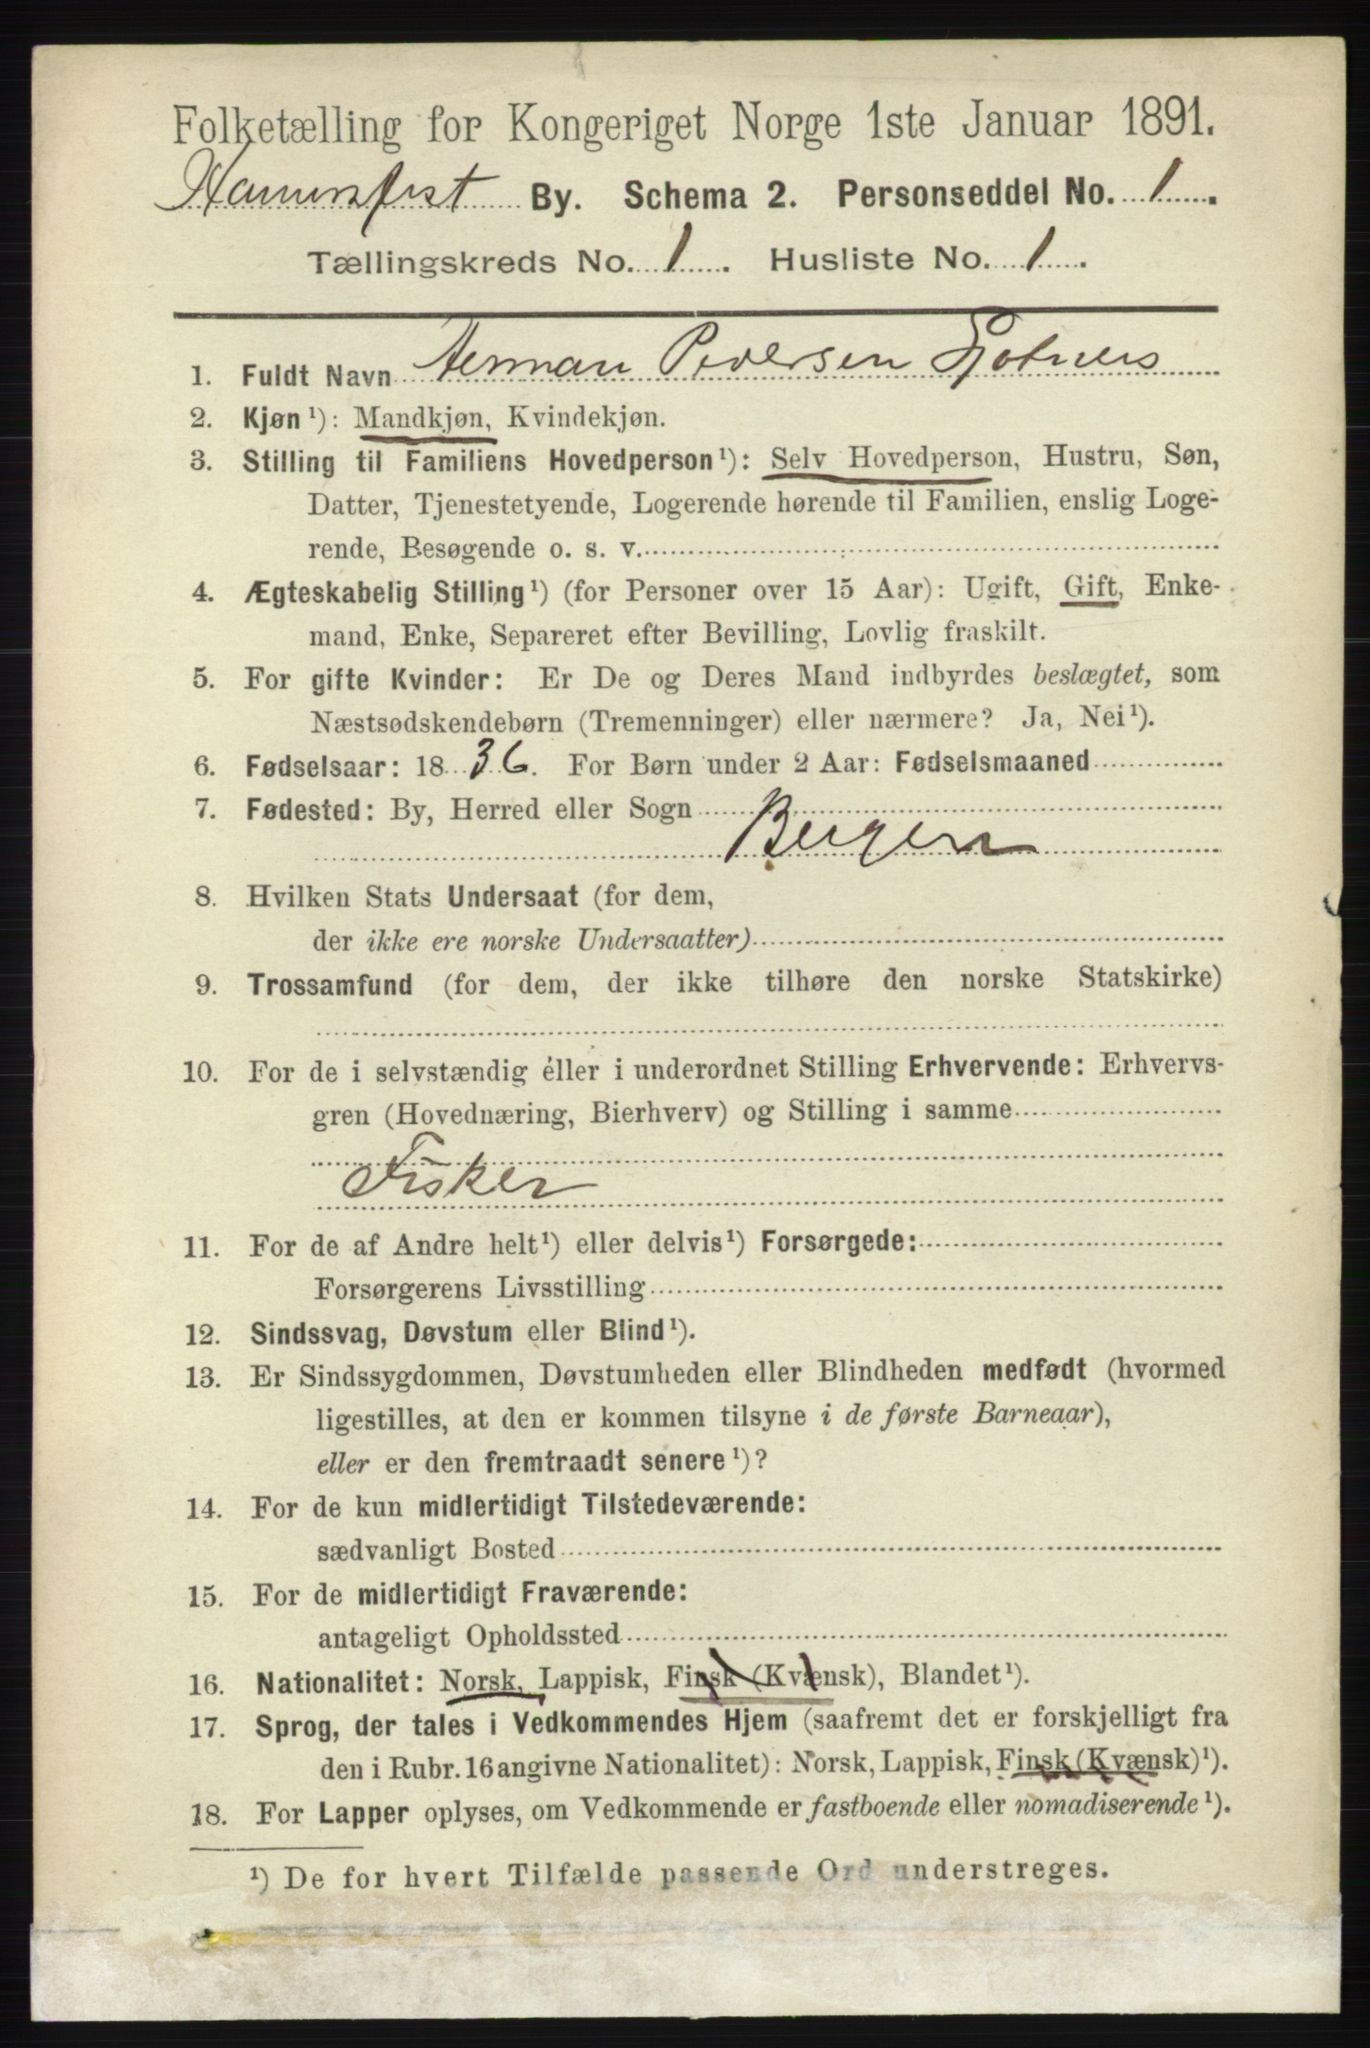 Folketælling for Kongeriget Norge 1ste Januar 1891.
Hammerfest By. Schema 2. Personseddel No. 1.
Tællingskreds No. 1. Husliste No. 1.
1. Fuldt Navn Herman Pedersen
2. Kjøn¹): Mandkjøn, Kvindekjøn.
3. Stilling til Familiens Hovedperson¹): Selv Hovedperson, Hustru, Søn,
Datter, Tjenestetyende, Logerende hørende til Familien, enslig Loge-
rende, Besøgende o. s. v.
4. Ægteskabelig Stilling¹) (for Personer over 15 Aar): Ugift, Gift, Enke-
mand, Enke, Separeret efter Bevilling, Lovlig fraskilt.
5. For gifte Kvinder: Er De og Deres Mand indbyrdes beslægtet, som
Næstsødskendebørn (Tremenninger) eller nærmere? Ja, Nei¹).
6. Fødselsaar: 1836. For Børn under 2 Aar: Fødselsmaaned
7. Fødested: By, Herred eller Sogn
Bergen
8. Hvilken Stats Undersaat (for dem,
der ikke ere norske Undersaatter)
9. Trossamfund (for dem, der ikke tilhøre den norske Statskirke)
10. For de i selvstændig éller i underordnet Stilling Erhvervende: Erhvervs-
gren (Hovednæring, Bierhverv) og Stilling i samme
Fisker
11. For de af Andre helt¹) eller delvis¹) Forsørgede:
Forsørgerens Livsstilling
12. Sindssvag, Døvstum eller Blind¹).
13. Er Sindssygdommen, Døvstumheden eller Blindheden medfødt (hvormed
ligestilles, at den er kommen tilsyne i de første Barneaar),
eller er den fremtraadt senere¹)?
14. For de kun midlertidigt Tilstedeværende:
sædvanligt Bosted
15. For de midlertidigt Fraværende:
antageligt Opholdssted
16. Nationalitet: Norsk, Lappisk, Finsk (Kvænsk), Blandet¹).
17. Sprog, der tales i Vedkommendes Hjem (saafremt det er forskjelligt fra
den i Rubr. 16 angivne Nationalitet): Norsk, Lappisk, Finsk (Kvænsk)¹).
18. For Lapper oplyses, om Vedkommende er fastboende eller nomadiserende¹).
¹) De for hvert Tilfælde passende Ord understreges.